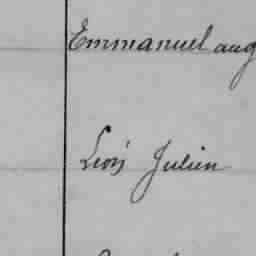 Emmanuel aug
Léon Julien